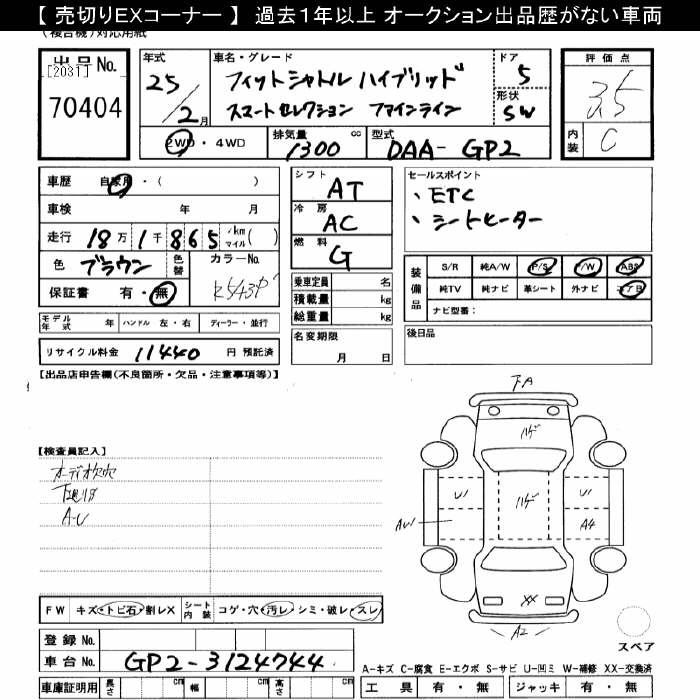 【 売切りEXコーナー 】 過去１年以上 オークション出品歴がない車両
(複合機)対応用紙
出品No.
[2031]
70404
年式
25
2月
車名・グレード
フィットシャトル ハイブリッド
スマートセレクション ファインライン
ドア
5
形状
SW
評価点
3.5
内装
C
2WD・4WD
排気量
1300
cc
型式
DAA- GP2
車歴 自家用・( )
車検 年 月
走行 18万1千865 km マイル( )
色 ブラウン 色替 カラーNo.
保証書 有・無
シフト
AT
冷房
AC
燃料
G
乗車定員 名
積載量 kg
総重量 kg
名変期限
月 日
セールスポイント
、ETC
、シートヒーター
装備品
S/R 純A/W P/S P/W ABS
純TV 純ナビ 革シート 外ナビ エアB
ナビ型番：
後日品
モデル年式 年 ハンドル 左・右 ディーラー・並行
リサイクル料金 11440 円 預託済
【出品店申告欄(不良箇所・欠品・注意事項等)】
【検査員記入】
オーディオ欠穴
下廻りサビ
A-U
下A
ハゲ
U1
ハゲ
U1
AW
A4
XX
A2
スペア
FW キズ・トビ石・割レX シート内装 コゲ・穴・汚レ・シミ・破レ・スレ
登録No.
車台No. GP2-3124744
A-キズ C-腐食 E-エクボ S-サビ U-凹ミ W-補修 XX-交換済
車庫証明用 長さ cm 幅 cm 高さ cm
工具 有・無 ジャッキ 有・無